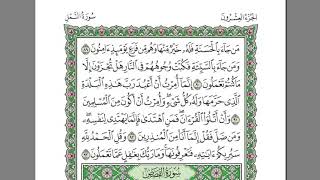 سُورَةُ النَّمْلِ
الجُزْءُ العِشْرُونَ
مَن جَآءَ بِٱلْحَسَنَةِ فَلَهُۥ خَيْرٌ مِّنْهَا وَهُم مِّن فَزَعٍ يَوْمَئِذٍ ءَامِنُونَ ٨٩
وَمَن جَآءَ بِٱلسَّيِّئَةِ فَكُبَّتْ وُجُوهُهُمْ فِى ٱلنَّارِ هَلْ تُجْزَوْنَ إِلَّا
مَا كُنتُمْ تَعْمَلُونَ ٩٠ إِنَّمَآ أُمِرْتُ أَنْ أَعْبُدَ رَبَّ هَٰذِهِ ٱلْبَلْدَةِ
ٱلَّذِى حَرَّمَهَا وَلَهُۥ كُلُّ شَىْءٍ وَأُمِرْتُ أَنْ أَكُونَ مِنَ ٱلْمُسْلِمِينَ
٩١ وَأَنْ أَتْلُوَا۟ ٱلْقُرْءَانَ فَمَنِ ٱهْتَدَىٰ فَإِنَّمَا يَهْتَدِى لِنَفْسِهِۦ
وَمَن ضَلَّ فَقُلْ إِنَّمَآ أَنَا۠ مِنَ ٱلْمُنذِرِينَ ٩٢ وَقُلِ ٱلْحَمْدُ لِلَّهِ
سَيُرِيكُمْ ءَايَٰتِهِۦ فَتَعْرِفُونَهَا وَمَا رَبُّكَ بِغَٰفِلٍ عَمَّا تَعْمَلُونَ ٩٣
سُورَةُ القَصَصِ